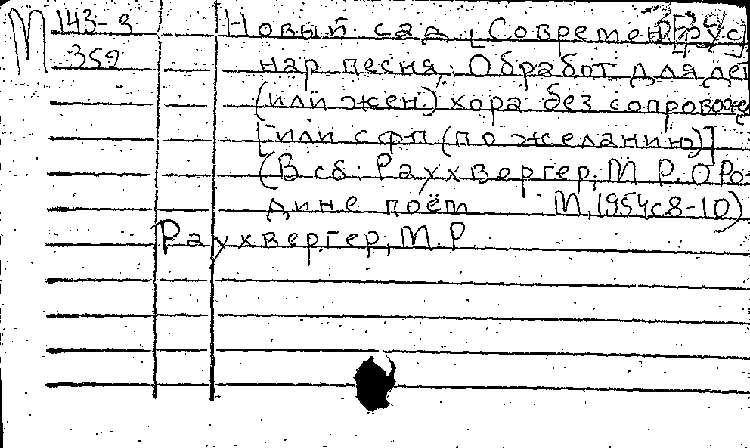 М 143-3
359
Новый сад [Современ. рус
нар песня. Обработ для дет
(или жен.) хора без сопровожд
[или с фп (по желанию)]
(В сб: Раухвергер, М Р. О Ро-
дине поёт М, 1954 с 8-10)
Раухвергер, М. Р